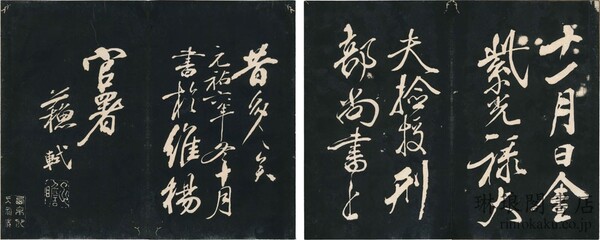 十一月日金
紫光祿大
夫檢校刑
部尚書上
昔
元祐年冬十月
書於維揚
官署
蘇軾
琳琅閣書店
rinrokaku.co.jp